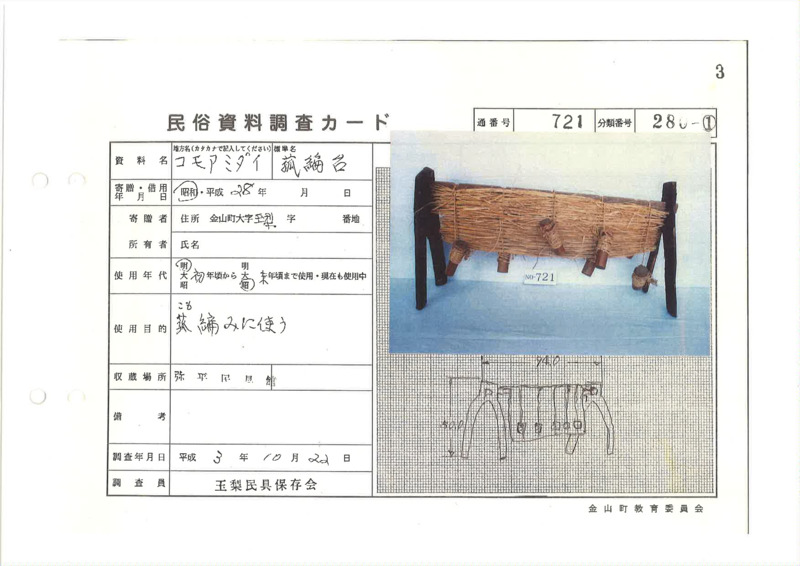 3
民俗資料調査カード
通番号 721 分類番号 286-①
資料名 地方名(カタカナで記入してください) コモアミダイ 標準名 菰編台
寄贈・借用年月日 昭和・平成 28年 月 日
寄贈者 住所 金山町大字玉梨 字 番地
所有者 氏名
使用年代 明大昭 初年頃から 明大昭 末年頃まで使用・現在も使用中
使用目的 菰編みに使う
こも
収蔵場所
備考
調査年月日 平成 3年 10月 22日
調査員 玉梨民具保存会
NO.721
94.0
50.0
金山町教育委員会